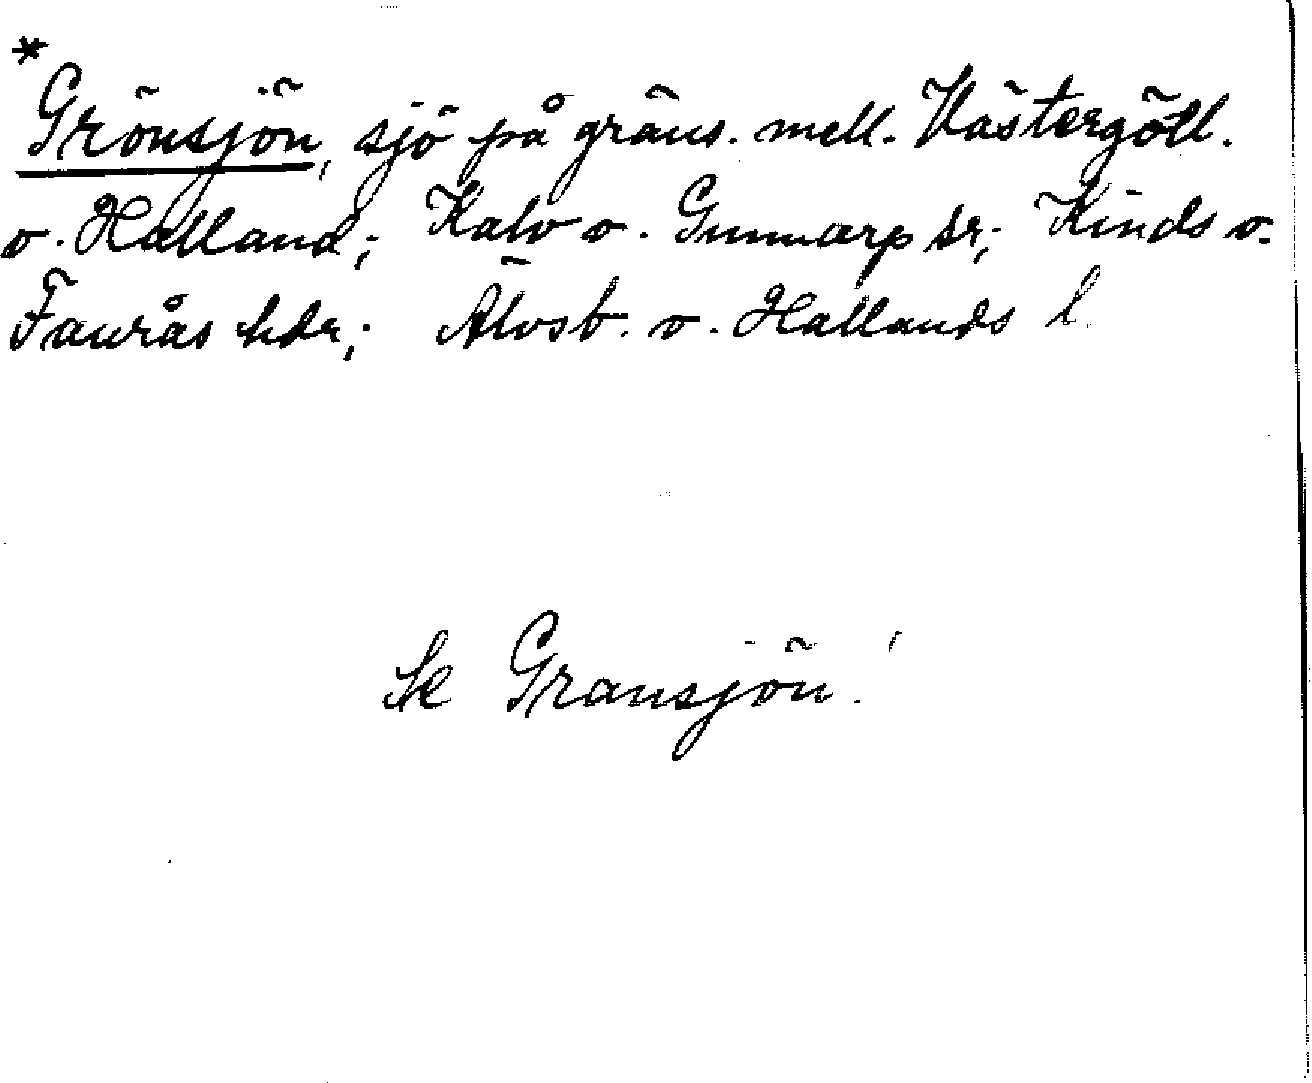 *
Grönsjön, sjö på gräns. mell. Västergötl.
o. Halland; Kalv o. Gunnarp sr; Kinds o.
Faurås hdr; Älvsb. o. Hallands l.
Se Gransjön!